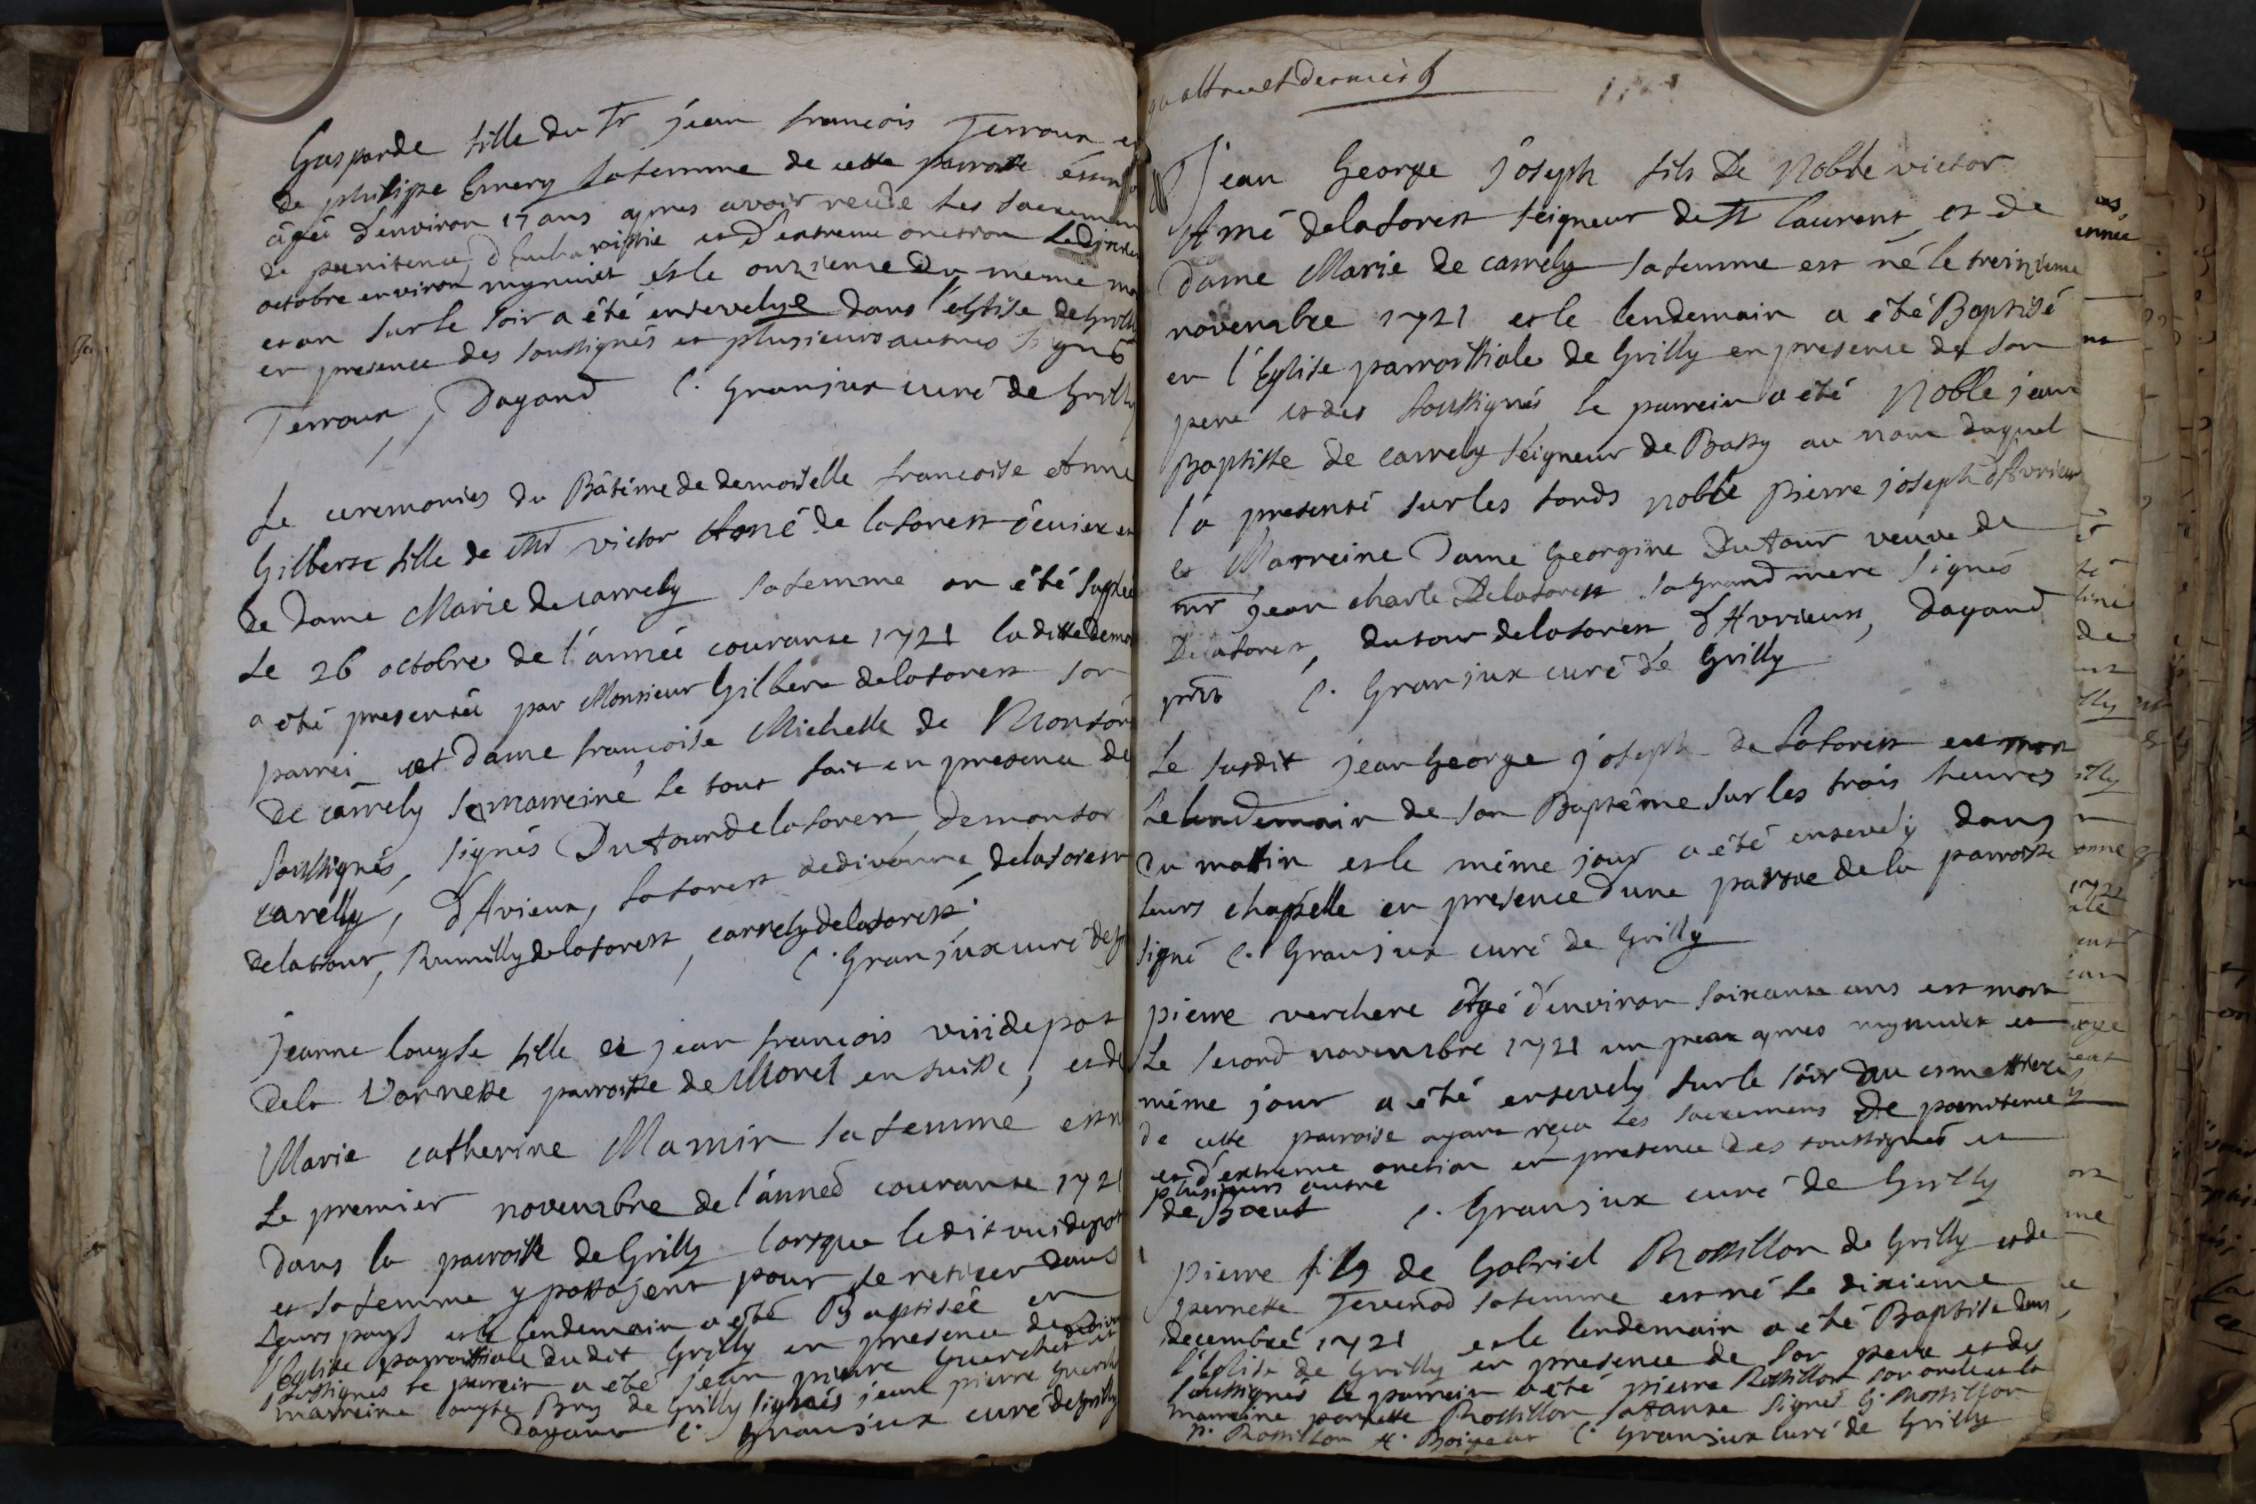 Gasparde fille du Sr jean francois Terroux et
de philipe Emery sa femme de cette parroisse
âgéé d'environ 17 ans apres avoir receüe les sacremens
de penitence, d'eucharistie et d'extreme onction
octobre environ mynuict et le onzieme du meme mois
et an sur le soir a été ensevelye dans l'eglise de Grilly
en presence des soussignés et plusieurs autres signé
Terroux, Dagand C. Granjux curé de Grilly
Le ceremonies du Bâtéme de demoiselle francoise Anne
Gilberte fille de Mr victor Amé de laforest écuier et
de Dame Marie de carrely sa femme on été supplée
Le 26 octobre de l'année courante 1721 la ditte demo
a été presentéé par Monsieur Gilbert de laforest son
parrei et Dame françoise Michelle de Montfor
de carrely sa marreine le tout fait en presence de
soussignés, signés Dutour de laforest, demonfor
carelly, d'Avieux, laforest dedivonne, delaforest
delatour, Rumilly delaforest, carrely delaforest.
C. Granjux curé de G
Jeanne louyse fille de jean francois vuidepot
dela Vornette parroisse de Morel en suisse, et de
Marie catherine Mamin sa femme est n
Le premier novembre de l'année courante 1721
dans la parroisse de Grilly lorsque ledit vuidepot
et sa femme y passojent pour se retirer dans
leurs pays et le lendemain a été Baptisée en
l'Eglise parroissiale dudit Grilly en presence de
soussignés le parrein a été jean pierre Guerchet
marreine louyse Bry de Grilly signés jean pierre Guerch
dagand C. Granjux curé de Grilly
quattre et dernier
Jean George joseph fils de Noble victor
Amé delaforest seigneur de St laurent, et de
Dame Marie de carrely sa femme est né le treizieme
novembre 1721 et le lendemain a été Baptisé
en l'Eglise parroissiale de Grilly en presence de son
pere et des soussignés le parrein a été Noble jean
Baptiste de carrely seigneur de Bassy au nom duquel
l'a presenté sur les fonds noble pierre joseph d'Avrieux
et Marreine Dame Georgine Dutour veuve de
mr jean charle Delaforest sa grand mere signés
Delaforest, dutour delaforest, d'Avrieux, dagand
C. Granjux curé de Grilly
Le susdit jean George joseph de laforest est mort
le lendemain de son Baptême sur les trois heures
du mattin et le même jour a été ensevely dans
leurs chapelle en presence d'une partie de la parroisse
signé C. Granjux curé de Grilly
pierre verchere âgé d'environ soixante ans est mort
Le second novembre 1721 un peux apres mynuict et
même jour a été ensevely sur le soir au cimettiere
de cette parroise ayant receu les sacremens de poenitence
et d'extreme onction en presence des soussignés et
plusieurs autre
de Boeuf C. Granjux curé de Grilly
pierre fils de Gabriel Rossillon de Grilly et de
pernette Tevenod sa femme est né le dixieme
decembre 1721 et le lendemain a été Baptisé dans
l'Eglise de Grilly en presence de son pere et des
soussignés le parrein a été pierre Rossillon son oncle et la
marreine pernette Rossillon sa tante signés G. Rossillon
p. Rossillon C. Granjux curé de Grilly